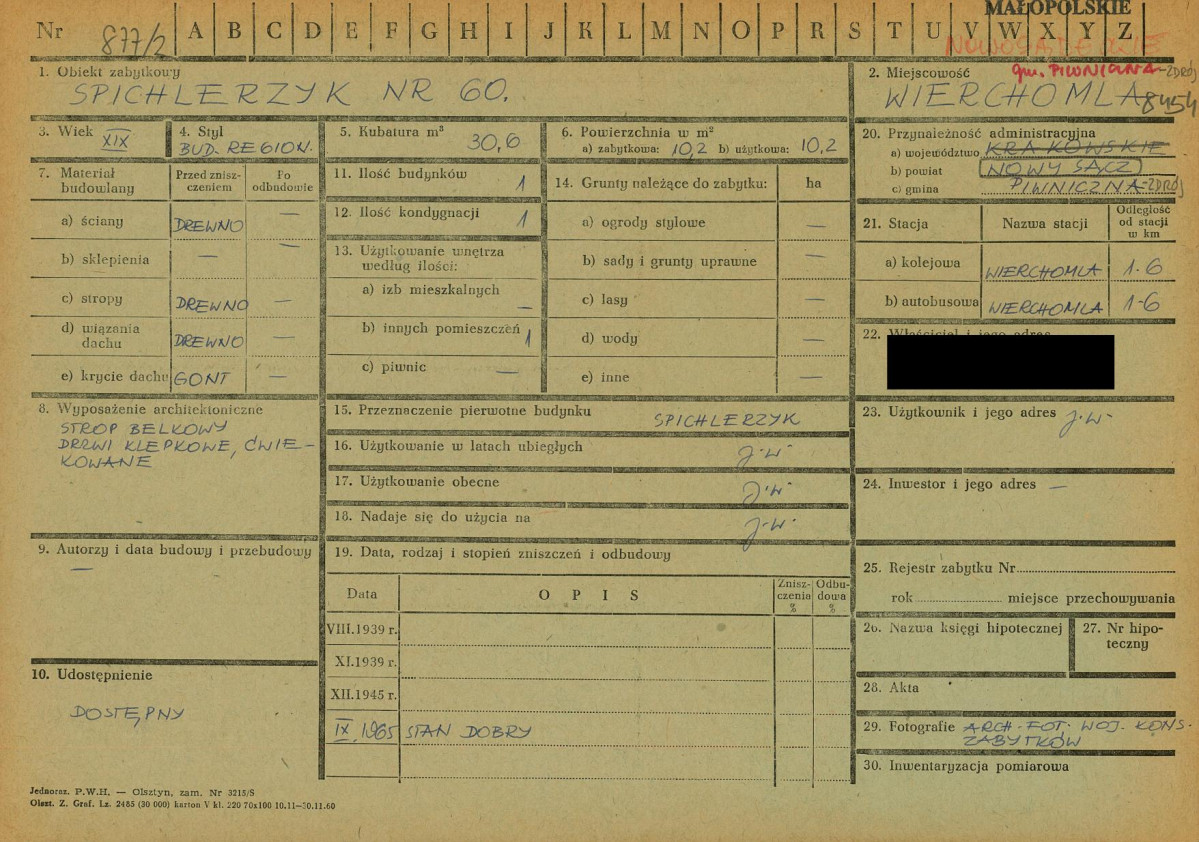 MAŁOPOLSKIE
Nr 877/2 A B C D E F G H I J K L M N O P R S T U V W X Y Z
NOWOSĄDECKIE
1. Obiekt zabytkowy
SPICHLERZYK NR 60.
2. Miejscowość gm. PIWNICZNA-ZDRÓJ
WIERCHOMLA 8454
3. Wiek XIX
4. Styl
BUD. REGION.
5. Kubatura m³ 30,6
6. Powierzchnia w m²
a) zabytkowa: 10,2 b) użytkowa: 10,2
7. Materiał budowlany
Przed zniszczeniem
Po odbudowie
a) ściany DREWNO —
b) sklepienia — —
c) stropy DREWNO —
d) wiązania dachu DREWNO —
e) krycie dachu GONT —
8. Wyposażenie architektoniczne
STROP BELKOWY
DRZWI KLEPKOWE, ĆWIE-
KOWANE
9. Autorzy i data budowy i przebudowy
—
10. Udostępnienie
DOSTĘPNY
11. Ilość budynków 1
12. Ilość kondygnacji 1
13. Użytkowanie wnętrza
według ilości:
a) izb mieszkalnych —
b) innych pomieszczeń 1
c) piwnic —
14. Grunty należące do zabytku: ha
a) ogrody stylowe —
b) sady i grunty uprawne —
c) lasy —
d) wody —
e) inne —
15. Przeznaczenie pierwotne budynku SPICHLERZYK
16. Użytkowanie w latach ubiegłych j.w.
17. Użytkowanie obecne j.w.
18. Nadaje się do użycia na j.w.
19. Data, rodzaj i stopień zniszczeń i odbudowy
Data OPIS Zniszczenia % Odbudowa %
VIII.1939 r.
XI.1939 r.
XII.1945 r.
IX.1965 STAN DOBRY
20. Przynależność administracyjna
a) województwo KRAKOWSKIE
b) powiat NOWY SĄCZ
c) gmina PIWNICZNA-ZDRÓJ
21. Stacja Nazwa stacji Odległość od stacji w km
a) kolejowa WIERCHOMLA 1-6
b) autobusowa WIERCHOMLA 1-6
22. Właściciel i jego adres
23. Użytkownik i jego adres j.w.
24. Inwestor i jego adres —
25. Rejestr zabytku Nr
rok miejsce przechowywania
26. Nazwa księgi hipotecznej
27. Nr hipo-
teczny
28. Akta
29. Fotografie ARCH. FOT. WOJ. KONS.
ZABYTKÓW
30. Inwentaryzacja pomiarowa
Jednoraz. P.W.H. — Olsztyn, zam. Nr 3215/S
Olszt. Z. Graf. Lz. 2485 (30 000) karton V kl. 220 70x100 10.11—30.11.60